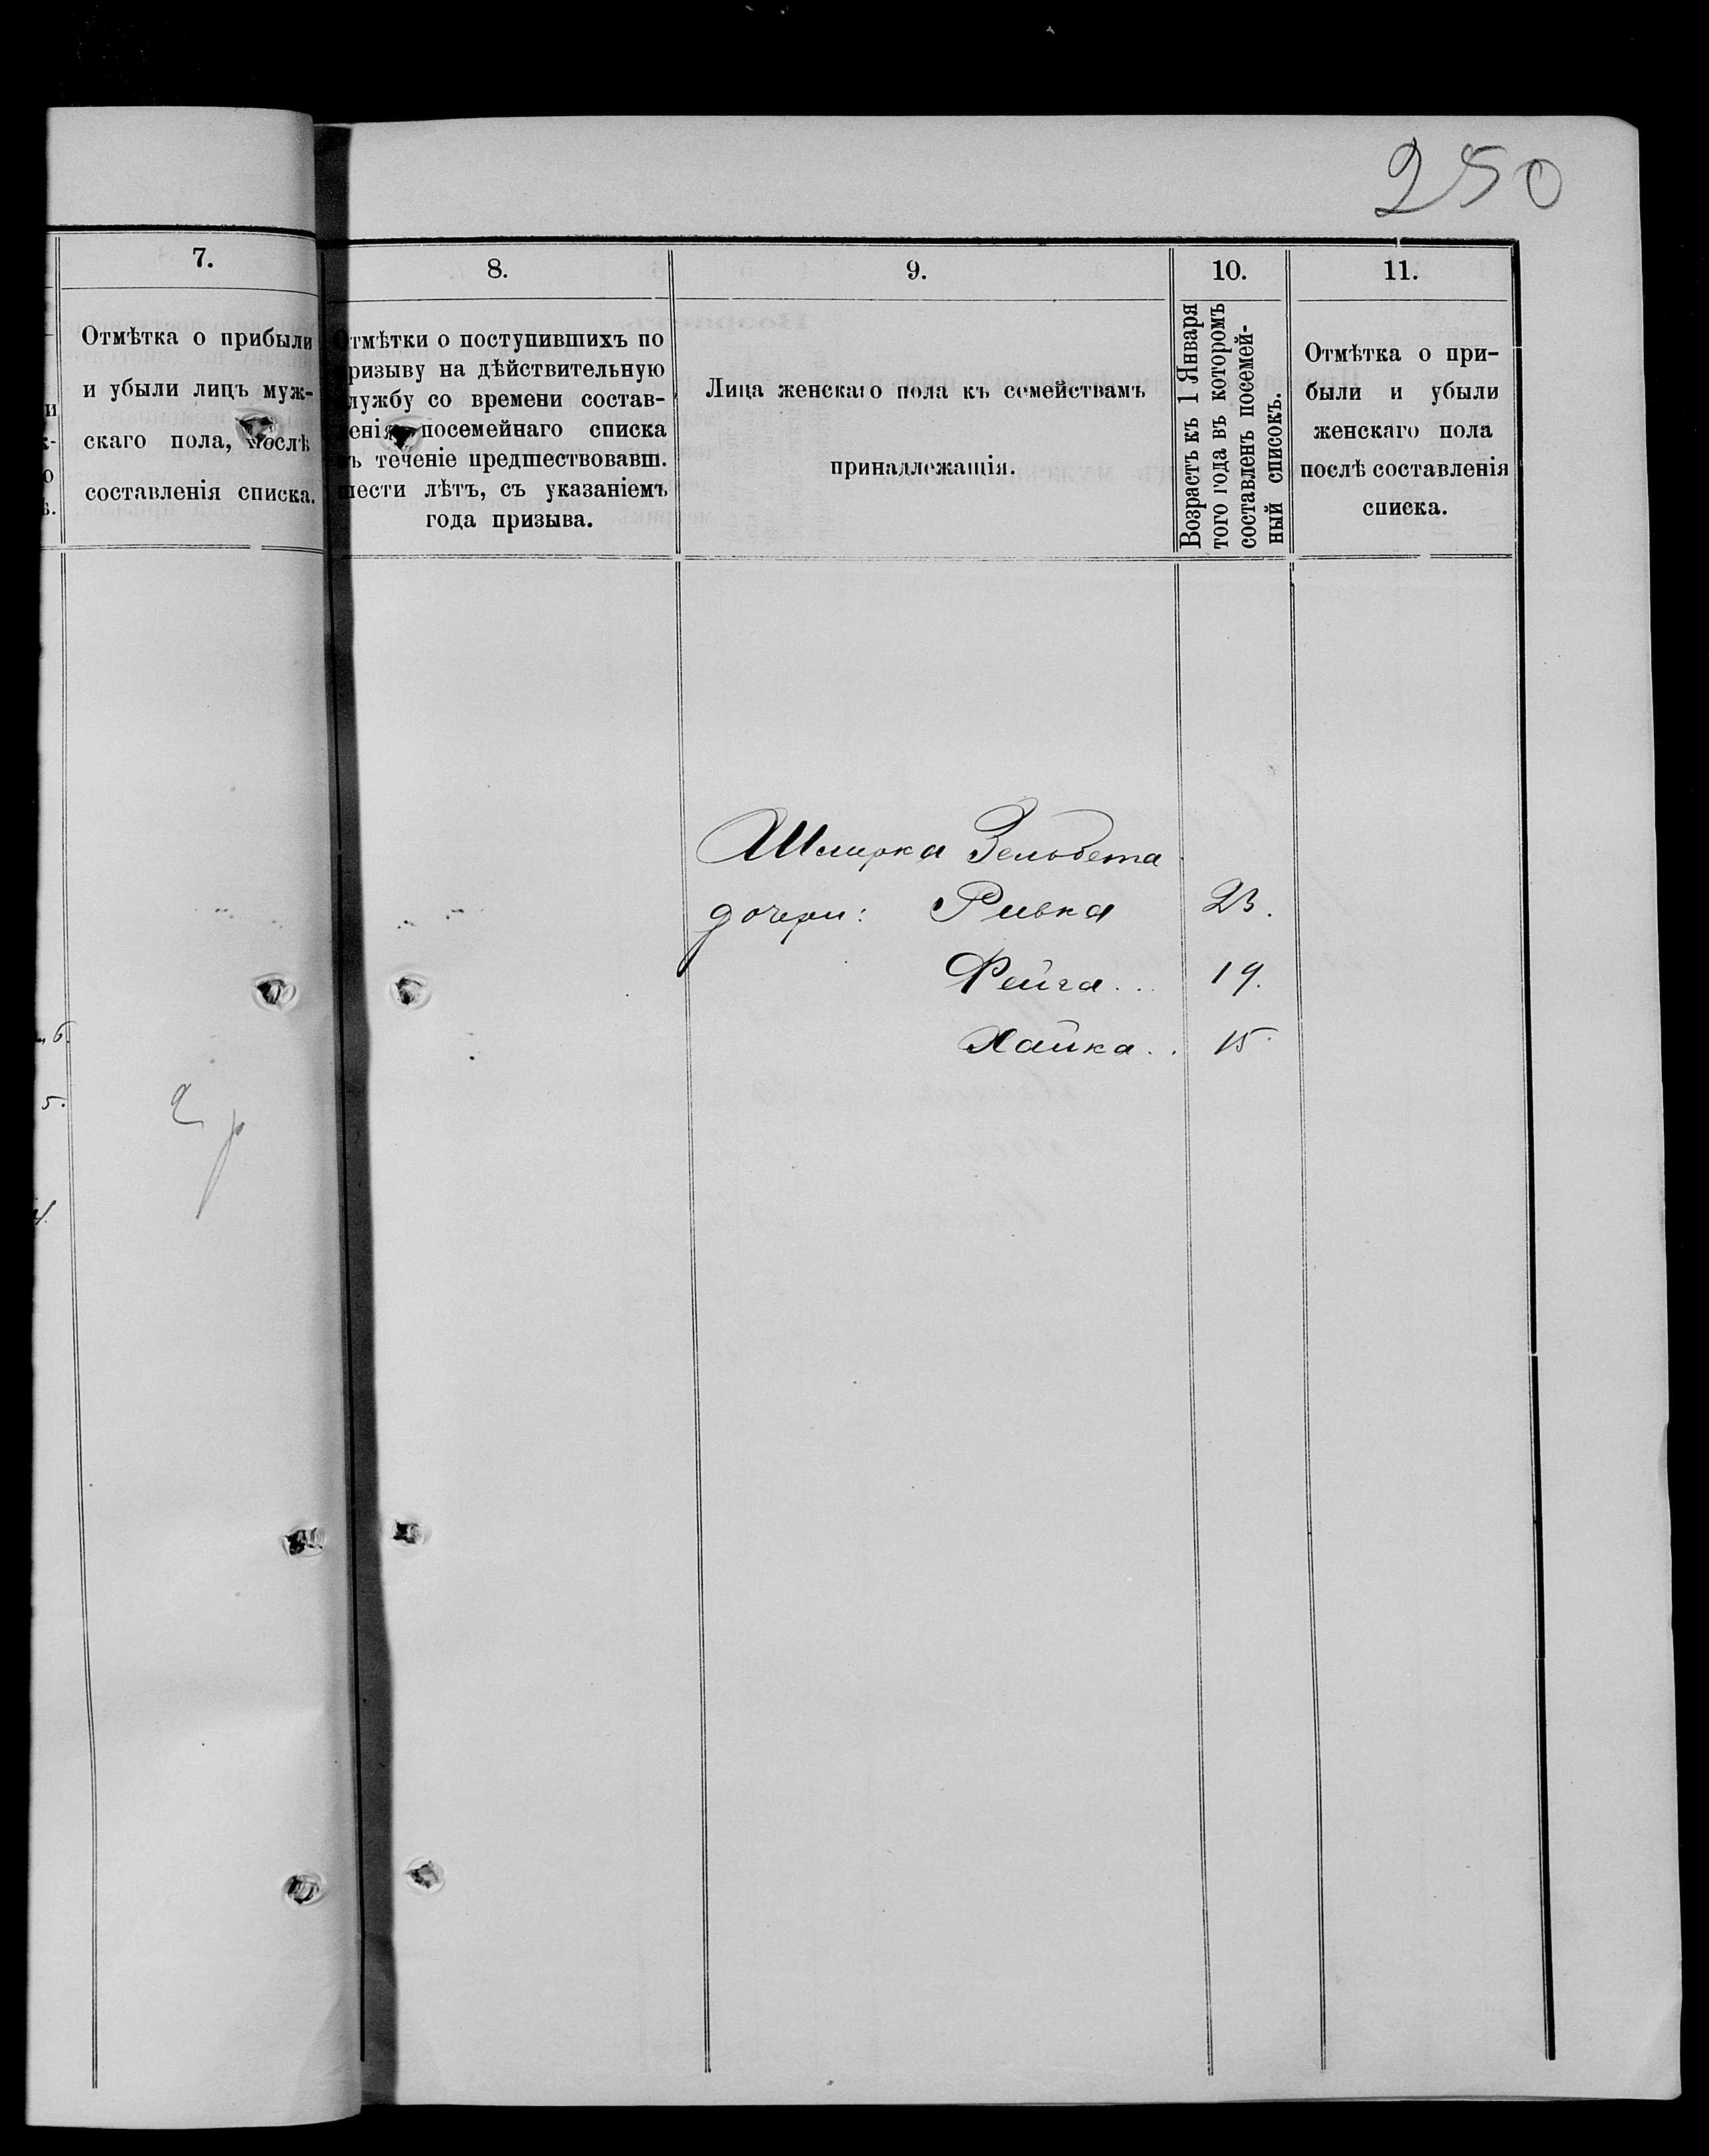 250
7.
Отмѣтка о прибыли
и убыли лицъ муж-
скаго пола, послѣ
составленія списка.
8.
Отмѣтки о поступившихъ по
призыву на дѣйствительную
службу со времени состав-
ленія посемейнаго списка
въ теченіе предшествовавш.
шести лѣтъ, съ указаніемъ
года призыва.
9.
Лица женскаго пола къ семействамъ
принадлежащія.
10.
Возрастъ къ 1 Января
того года въ которомъ
составленъ посемей-
ный списокъ.
11.
Отмѣтка о при-
были и убыли
женскаго пола
послѣ составленія
списка.
дочери: Ривка 23.
Фейга... 19.
Хайка.. 15.
5.